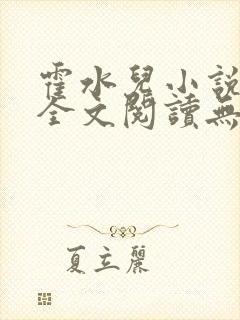 霍水兒小說
全文閱讀無
夏立麗